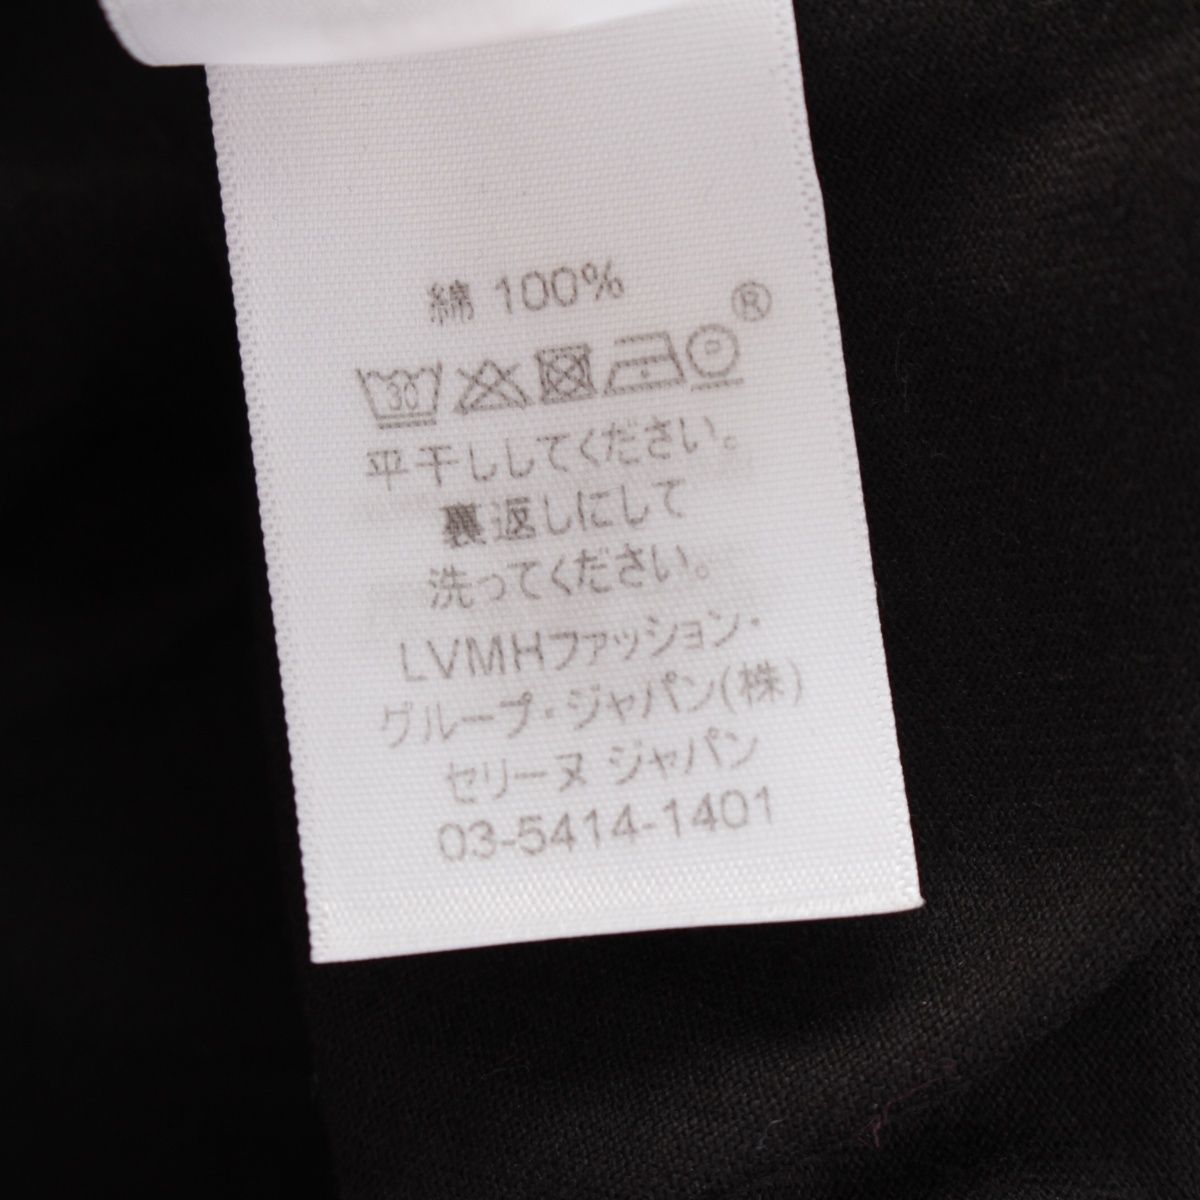 綿 100%
®
30
平干ししてください。
裏返しにして
洗ってください。
LVMHファッション・
グループ・ジャパン(株)
セリーヌ ジャパン
03-5414-1401